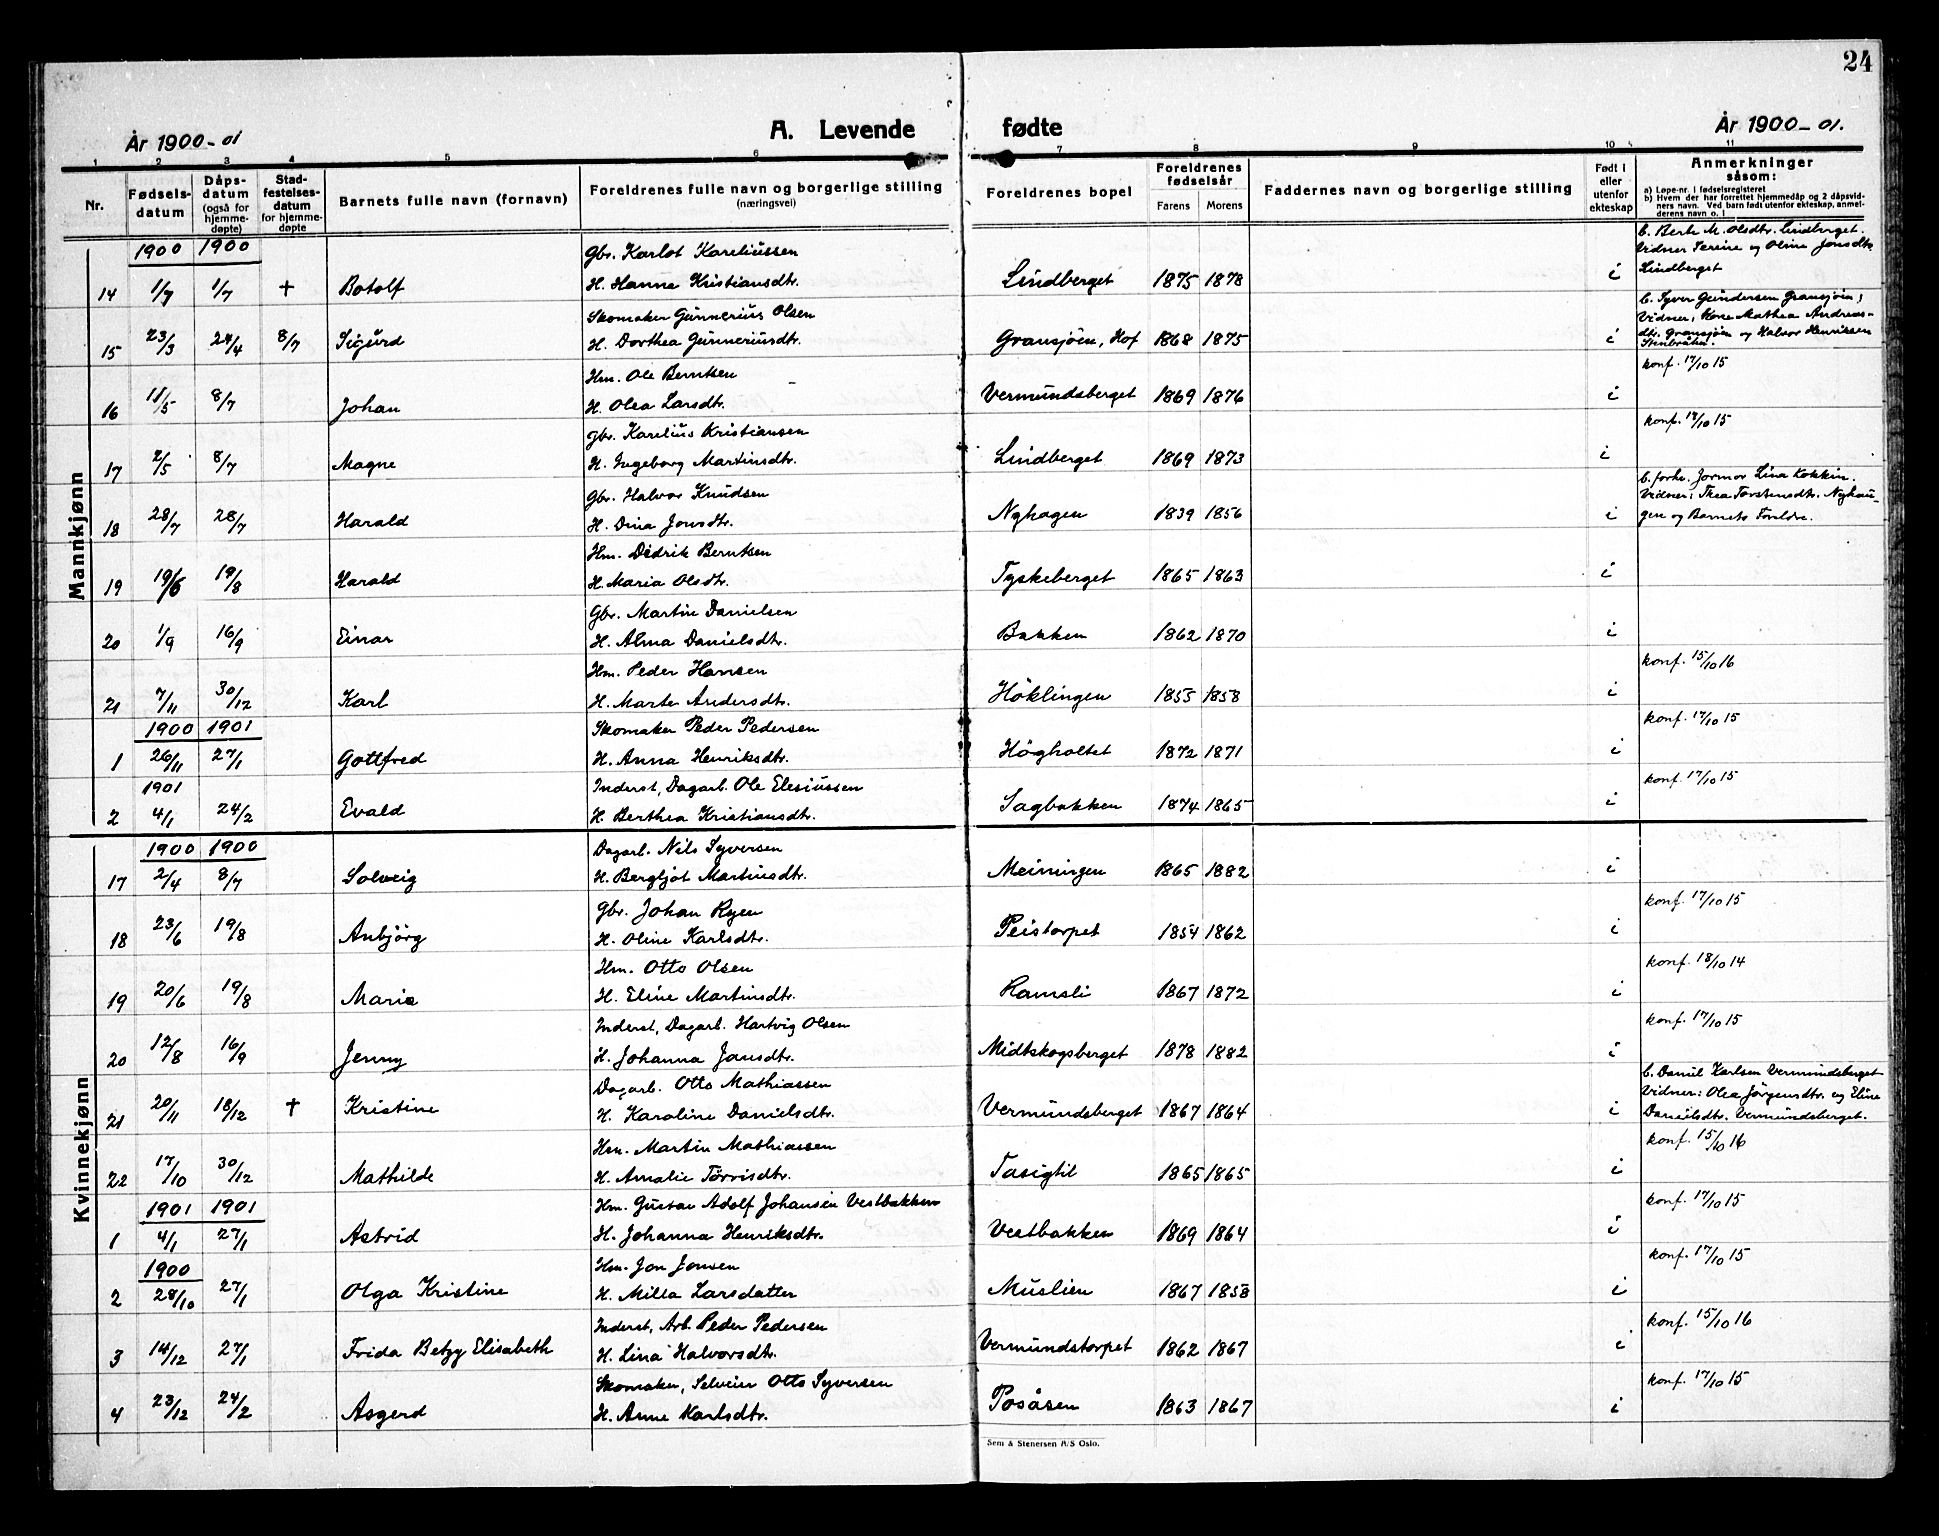 24
År 1900-01
A. Levende fødte
År 1900-01.
1 2 3 4 5 6 7 8 9 10 11
Nr.
Fødsels-datum
Dåps-datum (også for hjemme-døpte)
Stad-festelses-datum for hjemme-døpte
Barnets fulle navn (fornavn)
Foreldrenes fulle navn og borgerlige stilling (næringsvei)
Foreldrenes bopel
Foreldrenes fødselsår
Farens Morens
Faddernes navn og borgerlige stilling
Født i eller utenfor ekteskap
Anmerkninger såsom:
a) Løpe-nr. i fødselsregisteret
b) Hvem der har forrettet hjemmedåp og 2 dåpsvidners navn. Ved barn født utenfor ekteskap, anmelderens navn o. l
Mannkjønn
1900 1900 Gbr. Karlot Kareliussen b. Berte M. Olsdtr. Lindberget.
Vidner Serine og Oline Jonsdtr.
14 1/7 1/7 + Botolf H. Hanna Kristiansdtr. Lindberget 1875 1878 i Lindberget
Skomaker Gunnerius Olsen b. Syver Gundersen Gransjøen,
Vidner: Kone Mathea Andreas-
15 23/3 24/4 8/7 Sigurd H. Dorthea Gunneriusdtr. Gransjøen, Hof 1868 1875 i dtr. Gransjøen og Halvor Henriksen
Stenbråten.
Hm. Ole Berntsen konf. 17/10 15
16 11/5 8/7 Johan H. Olea Larsdtr. Vermundsberget 1869 1876 i
Gbr. Karelius Kristiansen konf. 17/10 15
17 2/5 8/7 Magne H. Ingeborg Martinsdtr. Lindberget 1869 1873 i
Gbr. Halvor Knudsen b. forh. Jormor Lina Kokkin.
Vidner: Thea Torstensdtr. Nyhau-
18 28/7 28/7 Harald H. Dina Jonsdtr. Nyhagen 1839 1856 i gen og Barnets Foreldre.
Hm. Didrik Berntsen
19 19/6 19/8 Harald H. Maria Olsdtr. Tyskeberget 1865 1863 i
Gbr. Martin Danielsen
20 1/9 16/9 Einar H. Alma Danielsdtr. Bakken 1862 1870 i
Hm. Peder Hansen konf. 15/10 16
21 7/11 30/12 Karl H. Marte Andersdtr. Höklingen 1855 1858 i
1900 1901 Skomaker Peder Pedersen konf. 17/10 15
1 26/11 27/1 Gottfred H. Anna Henriksdtr. Högholtet 1872 1871 i
1901 Inderst, Dagarb. Ole Elesiussen konf. 17/10 15
2 4/1 24/2 Evald H Berthea Kristiansdtr. Sagbakken 1874 1865 i
Kvinnekjønn
1900 1900 Dagarb. Nils Syversen
17 2/4 8/7 Solveig H. Bergljot Martinsdtr. Meiningen 1865 1882 i
Gbr. Johan Ryen konf. 17/10 15
18 23/6 19/8 Anbjörg H. Oline Karlsdtr. Peistorpet 1854 1862 i
Hm. Otto Olsen konf. 18/10 14
19 20/6 19/8 Marie H. Eline Martinsdtr. Ramsli 1867 1872 i
Inderst, Dagarb. Hartvig Olsen konf. 17/10 15
20 12/8 16/9 Jenny H. Johanna Jansdtr. Midtskogsberget 1878 1882 i
Dagarb. Otto Mathiassen b. Daniel Karlsen Vermundsberget
Vidner: Olea Jörgensdtr. og Eline
21 20/11 18/12 + Kristine H. Karoline Danielsdtr. Vermundsberget 1867 1864 i Danielsdtr. Vermundsberget.
Hm. Martin Mathiassen konf. 15/10 16
22 17/10 30/12 Mathilde H. Amalie Törrisdtr. Tasigtil 1865 1865 i
1901 1901 Hm. Gustav Adolf Johansen Vestbakken konf. 17/10 15
1 4/1 27/1 Astrid H. Johanna Henriksdtr. Vestbakken 1869 1864 i
1900 Hm. Jon Jonsen konf. 17/10 15
2 28/10 27/1 Olga Kristine H. Milla Larsdatter Muslien 1867 1858 i
Inderst, Arb. Peder Pedersen konf. 15/10 16
3 14/12 27/1 Frida Betzy Elisabeth H. Lina Halvorsdtr. Vermundstorpet 1862 1867 i
Skomaker, Selveier Otto Syversen konf. 17/10 15
4 23/12 24/2 Asgerd H. Anne Karlsdtr. Posåsen 1863 1867 i
Sem & Stenersen A/S Oslo.